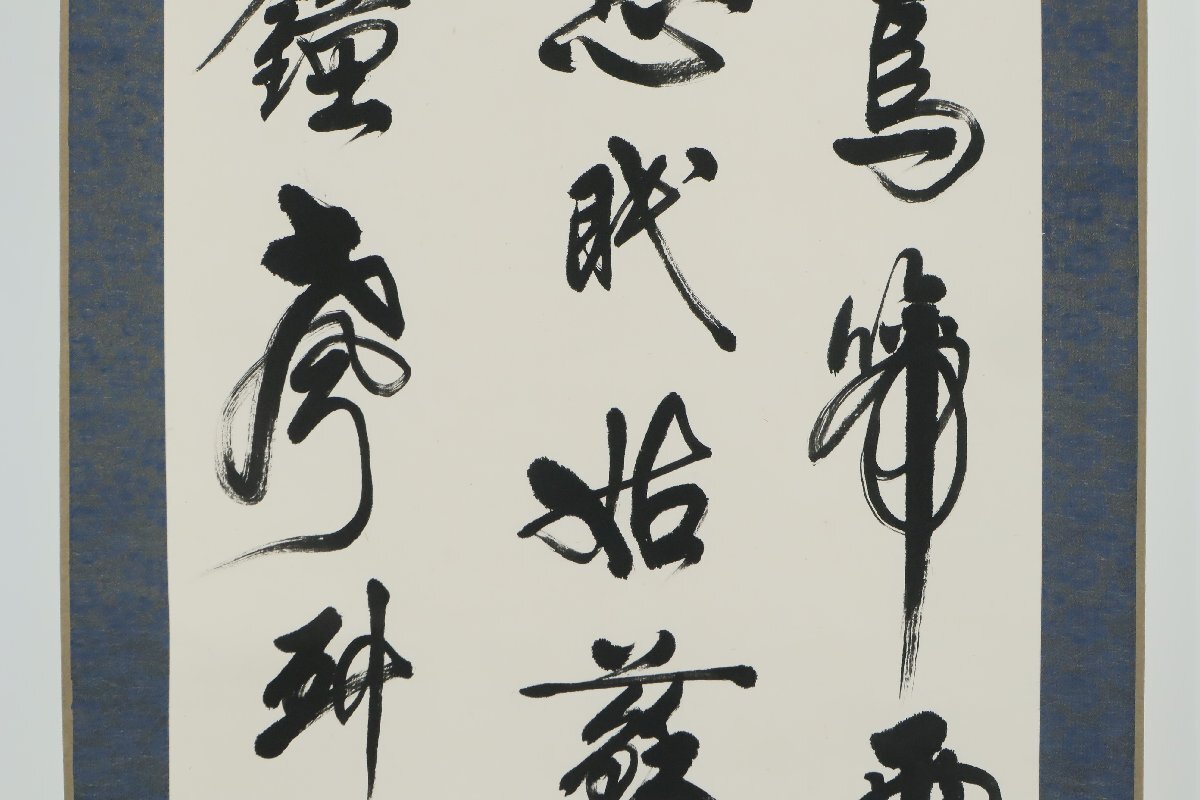 烏啼霜
愁眠姑蘇
鐘聲到